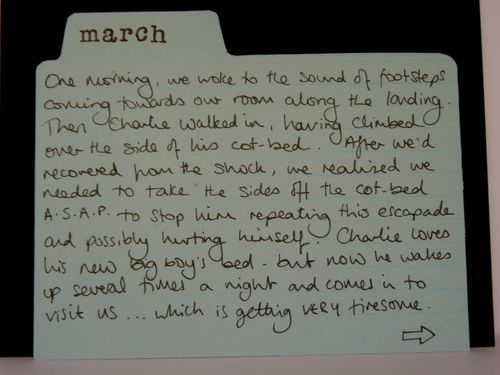 march
One morning, we woke to the sound of footsteps
coming towards our room along the landing.
Then Charlie walked in, having climbed
over the side of his cot-bed. After we'd
recovered from the shock, we realised we
needed to take the sides off the cot-bed
A.S.A.P. to stop him repeating this escapade
and possibly hurting himself. Charlie loves
his new big boy's bed - but now he wakes
up several times a night and comes in to
visit us ... which is getting VERY tiresome.